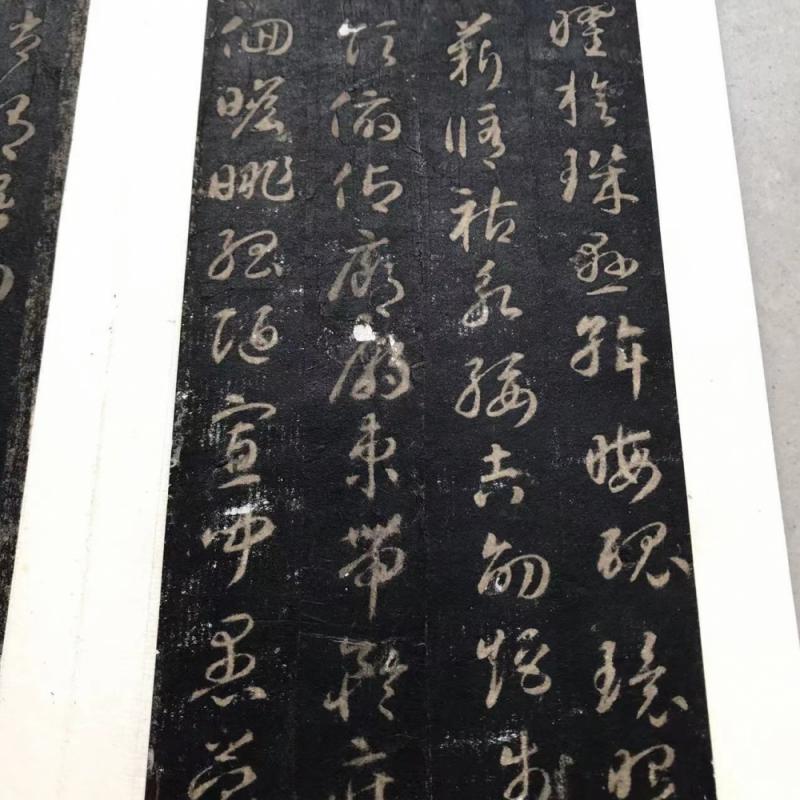 曜旋璣懸斡晦魄環照
薪脩祜永綏吉劭矩步
領俯仰廊廟束帶矜莊
佪瞻眺孤陋寡聞愚蒙